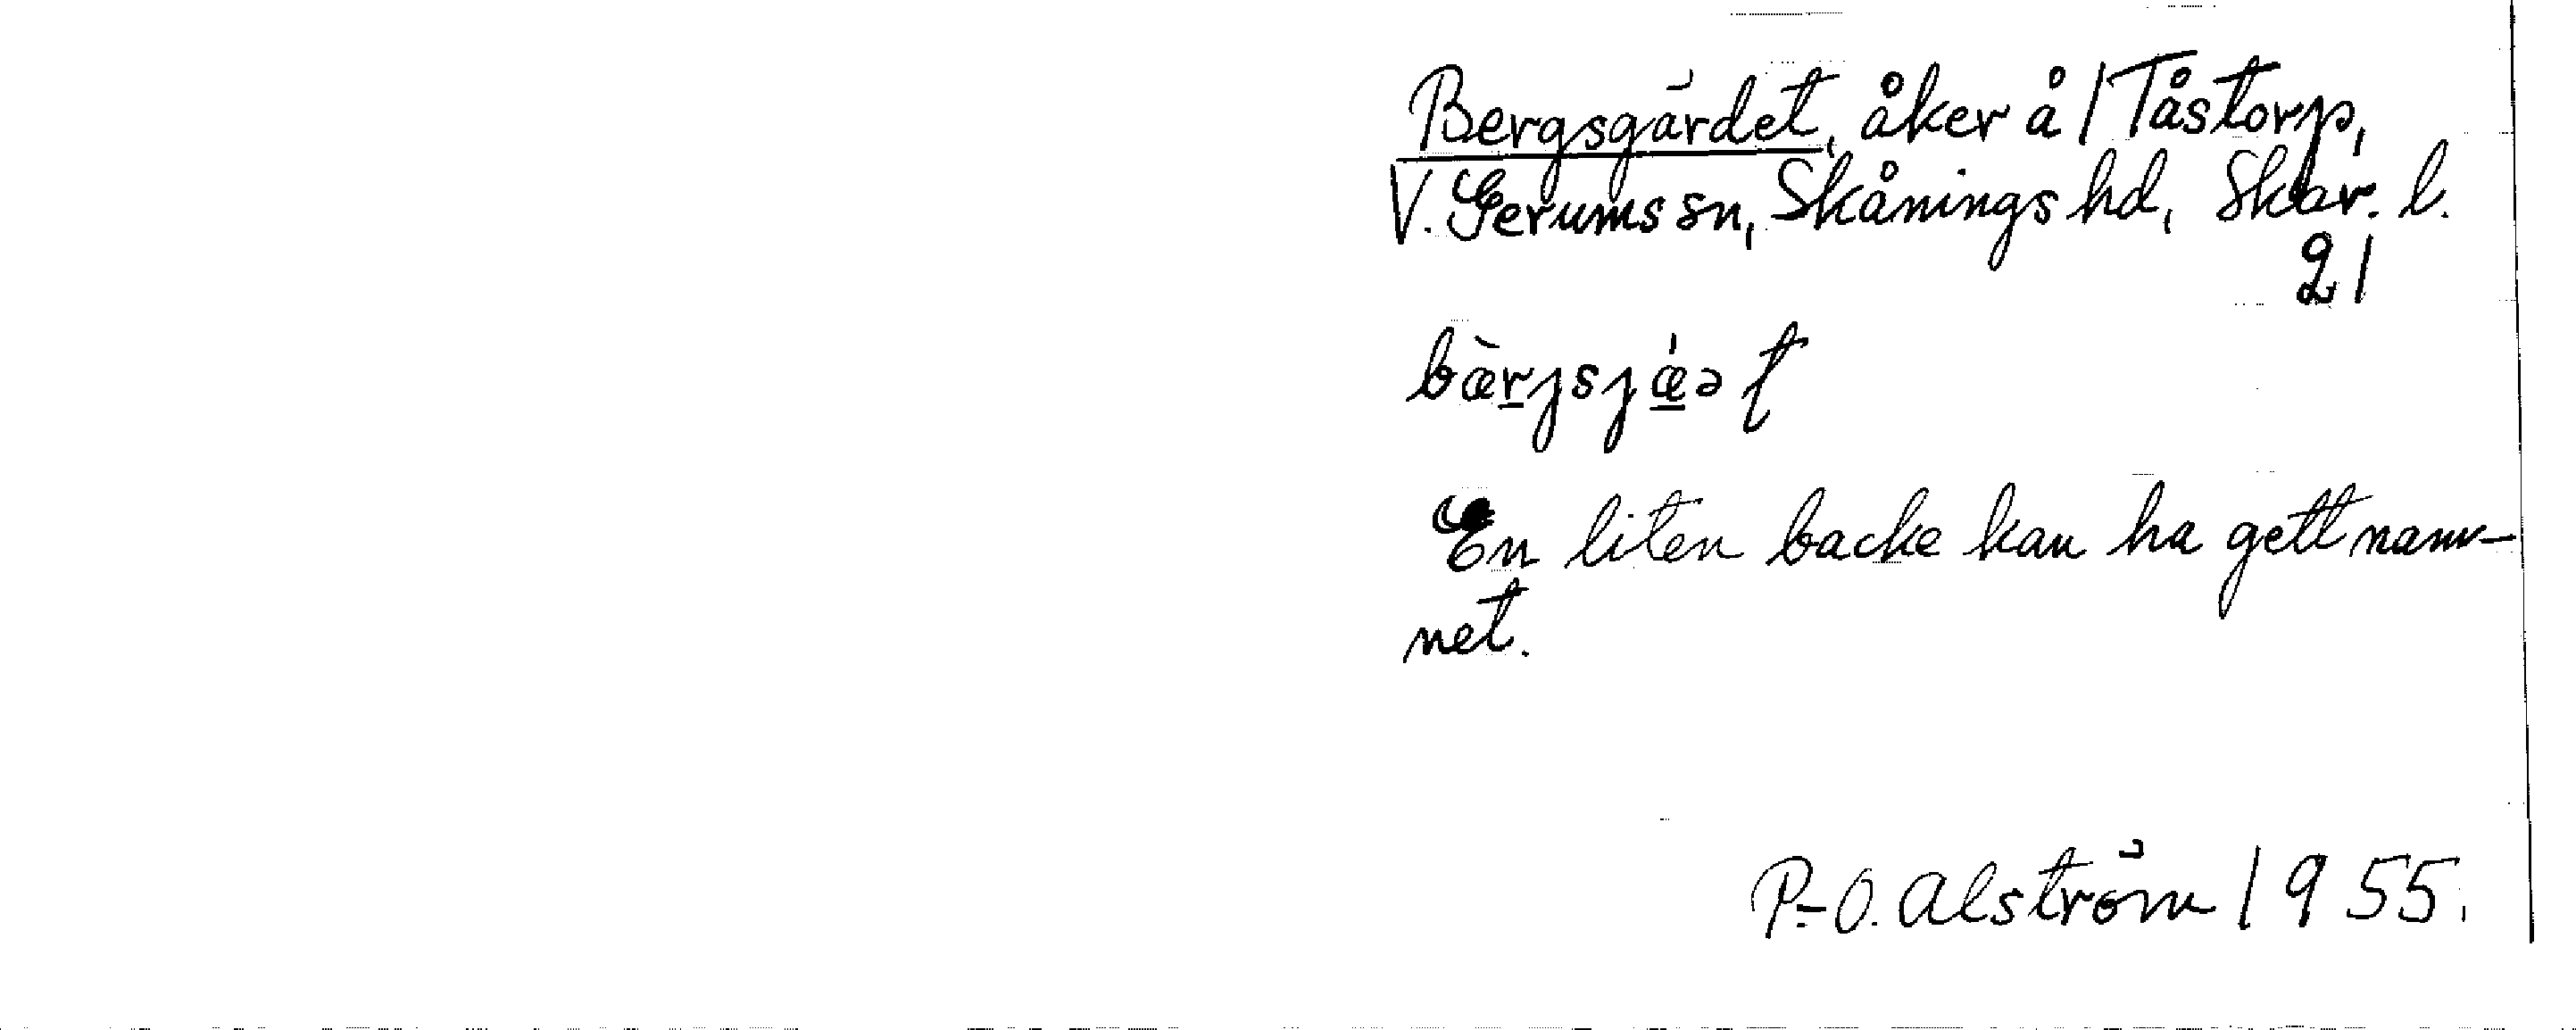 Bergsgärdet, åker å 1 Tåstorp,
V. Gerums sn, Skånings hd, Skar. l.
21
bæ̀rjsjæ̍ət
En liten backe kan ha gett namn-
net.
P.-O. Alström 1955.